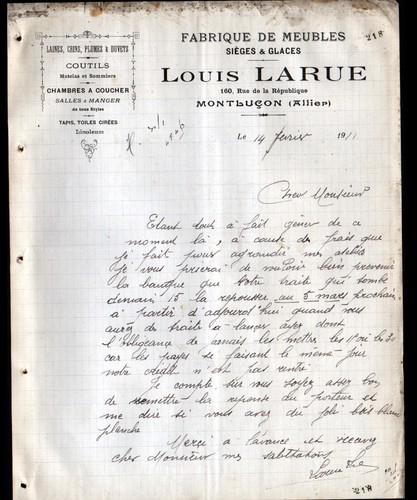 218
LAINES, CRINS, PLUMES & DUVETS
COUTILS
Matelas et Sommiers
CHAMBRES A COUCHER
SALLES à MANGER
de tous Styles
TAPIS, TOILES CIRÉES
Linoleum
FABRIQUE DE MEUBLES
SIÈGES & GLACES
LOUIS LARUE
160, Rue de la République
MONTLUÇON (Allier)
Le 14 fevrier 1911
Cher Monsieur
Etant tout à fait gêner de ce
moment là, à cause des frais que
je fait pour agrandir mes ateliers
je vous prierai de vouloir bien prevenir
la banque que votre traite qui tombe
demain 15 la repousser au 5 mars prochain
à partir d'adjourd'hui quand vous
aurez des traites à lancer ayez dont
l'obligeance de jamais les mettre les 15 ou les 30
car les payes se faisant le meme jour
notre credit n'est pas rentré
Je compte sur vous soyez assez bon
de remettre la reponse du porteur et
me dire si vous avez du joli bois blanc
planche
Merci à l'avance et recevez
cher Monsieur mes salutations
218